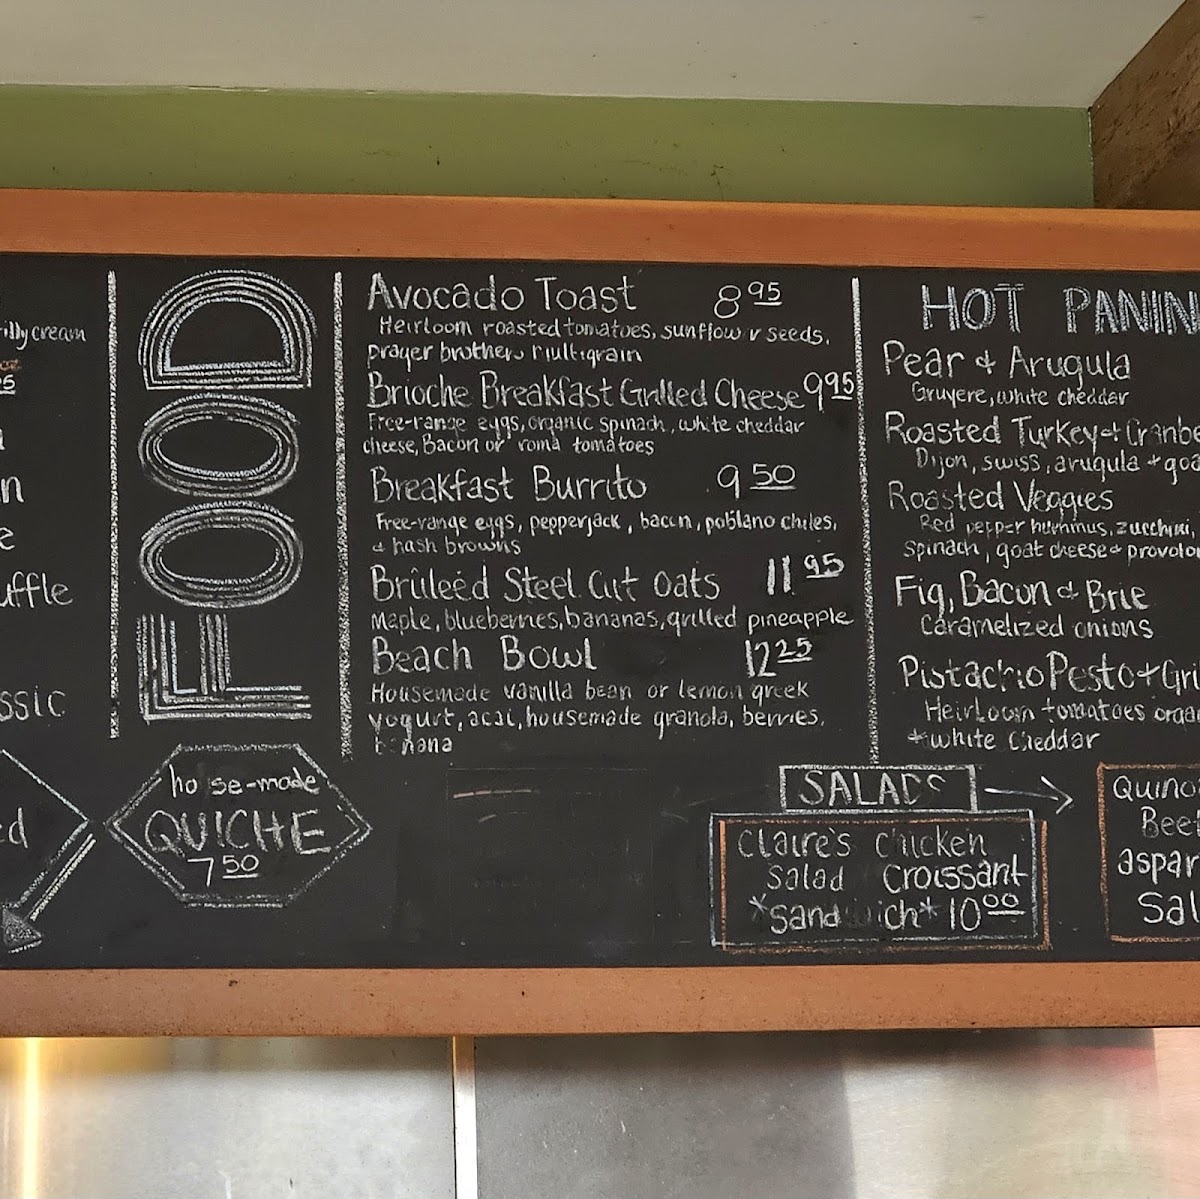 illy cream
uffle
FOOD
Avocado Toast 8 95
Heirloom roasted tomatoes, sunflow r seeds,
prager brothers multigrain
Brioche Breakfast Grilled Cheese 9 95
Free-range eggs, organic spinach, white cheddar
cheese, Bacon or roma tomatoes
Breakfast Burrito 9 50
Free-range eggs, pepperjack, bacon, poblano chiles,
& hash browns
Brûleéd Steel Cut Oats 11 95
Maple, blueberries, bananas, grilled pineapple
Beach Bowl 12 25
Housemade vanilla bean or lemon greek
yogurt, acai, housemade granola, berries,
banana
HOT PANIN
Pear & Arugula
Gruyere, white cheddar
Roasted Turkey + Cranbe
Dijon, swiss, arugula + goa
Roasted Veggies
Red pepper hummus, zucchini,
Spinach, goat cheese & provolon
Fig, Bacon & Brie
Caramelized onions
Pistachio Pesto + Gri
Heirloom tomatoes orga
+ white Cheddar
house-made
QUICHE
7 50
SALADS
Claire's Chicken
Salad Croissant
*Sandwich* 10 00
Quino
Bee
aspar
Sal